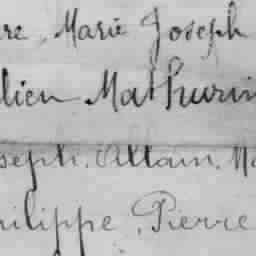 re, Marie Joseph
lien Mathurin
seph, Allain, Ma
hilippe, Pierre